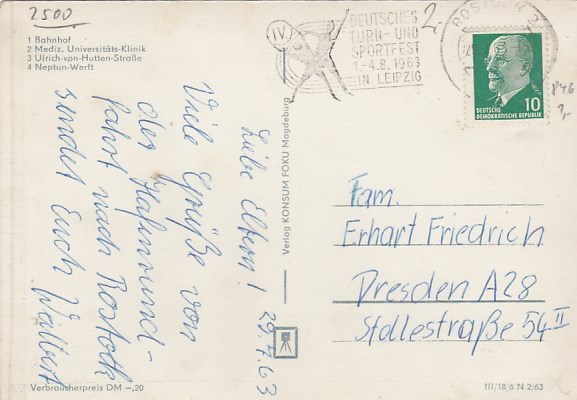 2500
1 Bahnhof
2 Mediz. Universitäts-Klinik
3 Ulrich-von-Hutten-Straße
4 Neptun-Werft
IV.
DEUTSCHES
TURN- UND
SPORTFEST
1.-4.8.1963
IN LEIPZIG
2.-
ROSTOCK 2
10
DEUTSCHE
DEMOKRATISCHE REPUBLIK
Liebe Eltern! 29.7.63
Viele Grüße von
der Hafenrund-
fahrt nach Rostock
sendet Euch
Verlag KONSUM FOKU Magdeburg
Fam.
Erhart Friedrich
Dresden A28
Stollestraße 54 II
Verbraucherpreis DM -,20
III/18/6 N 2/63